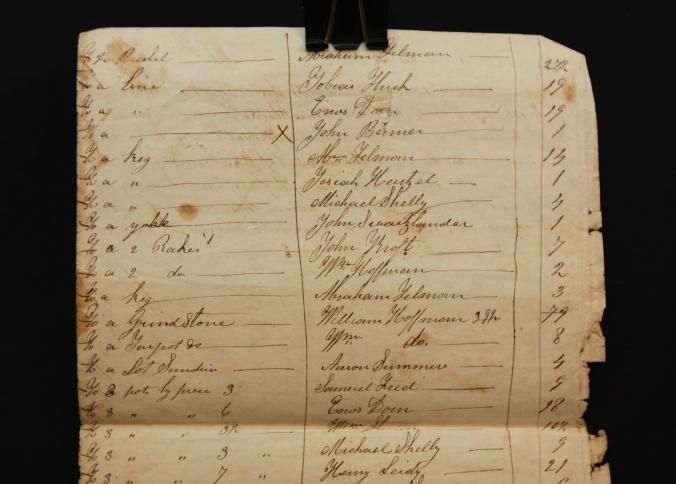 To Bushel Abraham Zelman 27½
To a line Tobias Huch 19
To a " Enos Dorn 19
To a X John Benner 1
To a keg Mrs Zelman 14
To a " Josiah Heutzel 1
To a " Michael Shelly 4
To a yoke John Swartzlander 1
To a 2 Rakes John Kroft 7
To a 2 do. Wm Hoffman 2
To a keg Abraham Zelman 3
To a Grind Stone William Hoffman 79
To a &c Wm do. 8
To a Lot Sundries Aaron Summers 4
To 3 pots by piece 3 Samuel 9
To 3 " " 6 Enos Dorn 18
To 3 " " 3½ Wm 10½
To 3 " " 3 " Michael Shelly 9
To 3 " " 7 " Henry Leidy 21